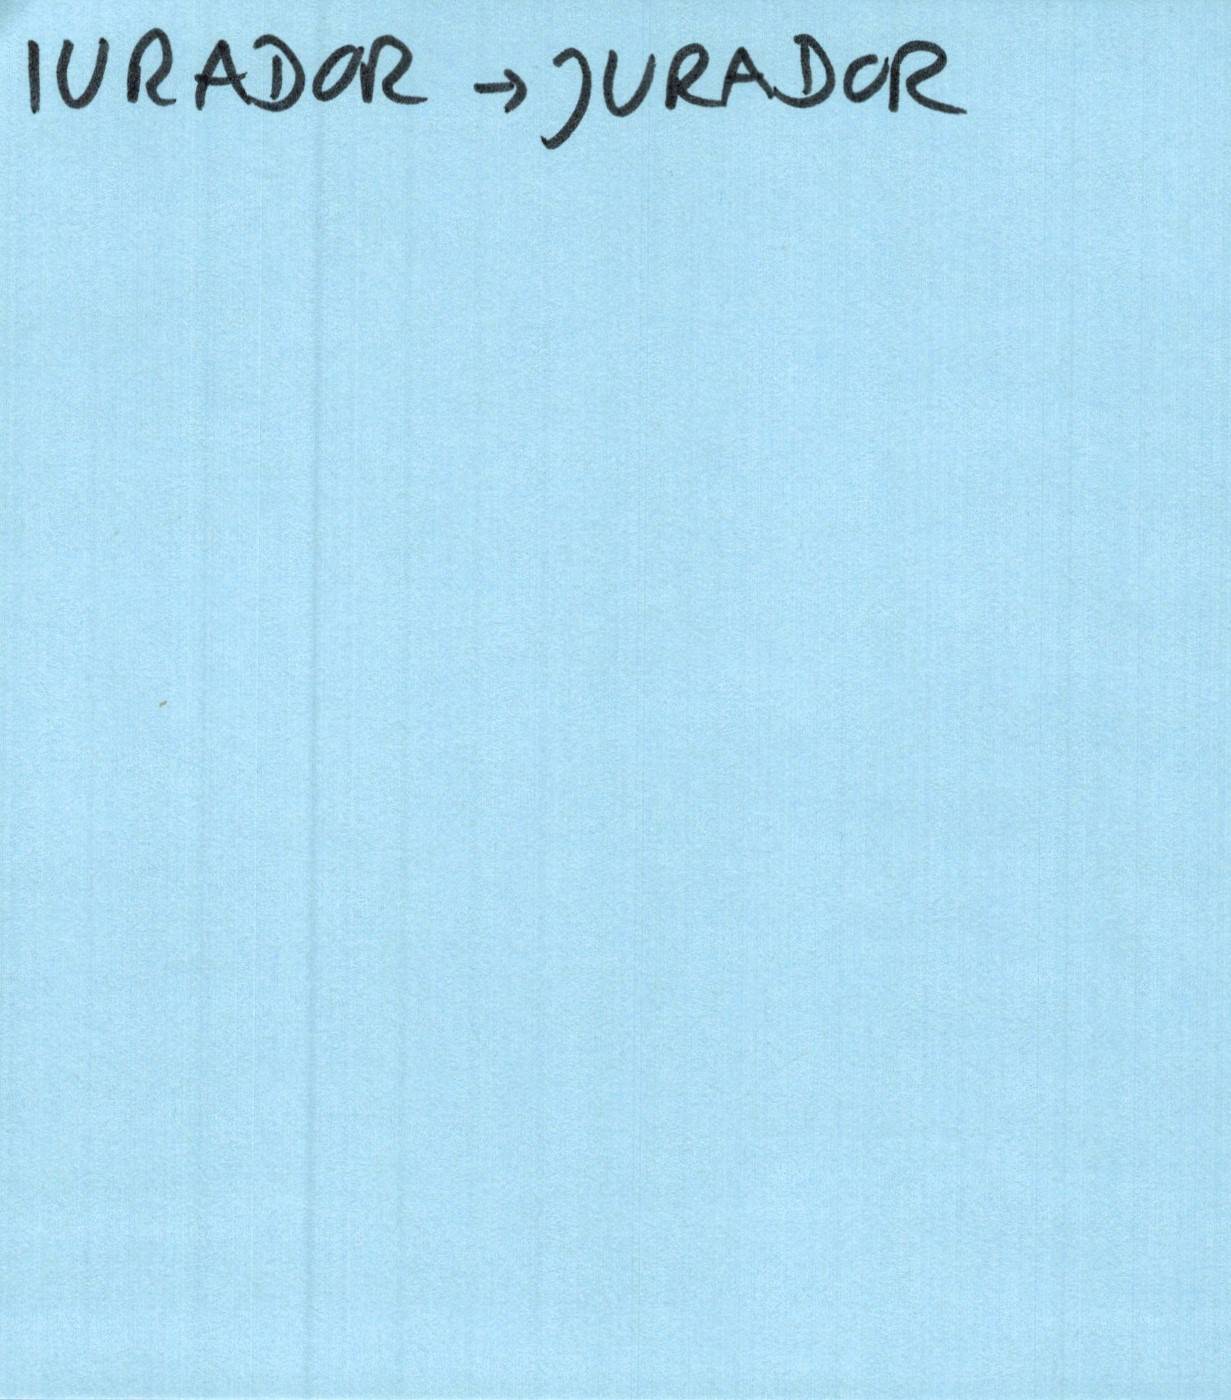 IURADOR → JURADOR